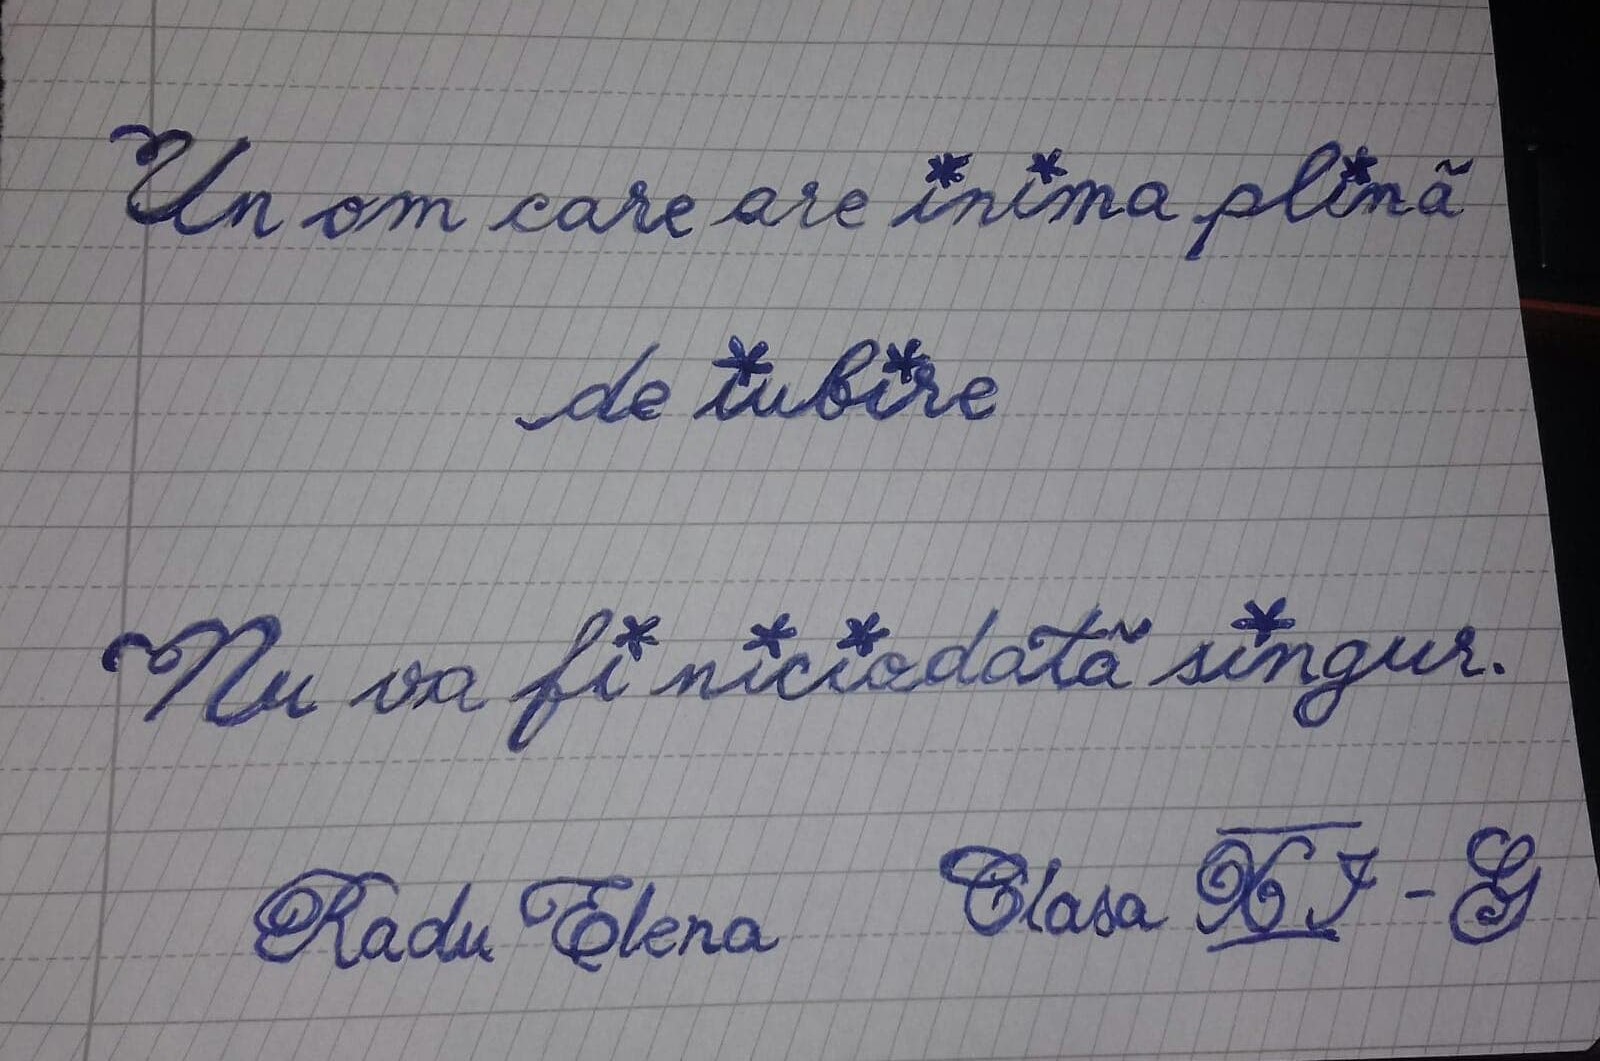 Un om care are inima plină
de iubire
Nu va fi niciodată singur.
Radu Elena Clasa XI - G